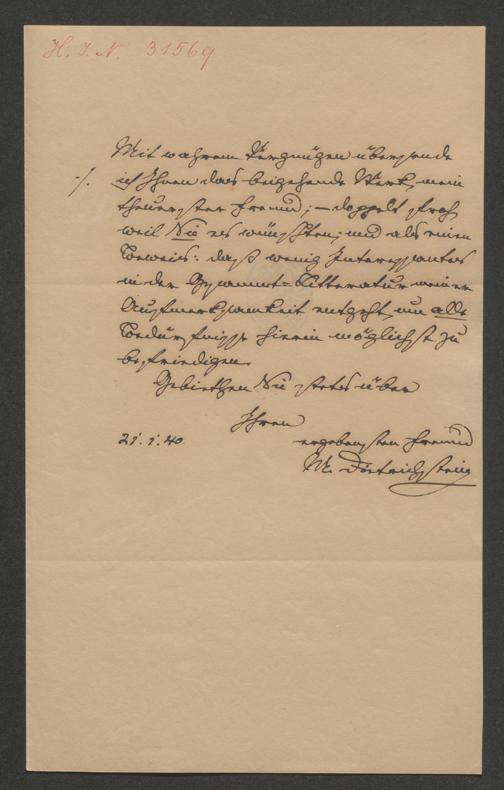 H. I. N. 31569
Mit wahrem Vergnügen übersende
./. ich Ihnen das beigehende Werk, mein
theuerster Freund; – doppelt froh,
weil Sie es wünschten, und als einen
Beweis: daß wenig Interessantes
in der Gesammt=Litteratur meiner
Aufmerksamkeit entgeht, um alle
Bedürfnisse hierin möglichst zu
befriedigen.
Gebiethen Sie stets über
Ihren
21. 1. 40. ergebensten Freund
M. Dietrichstein